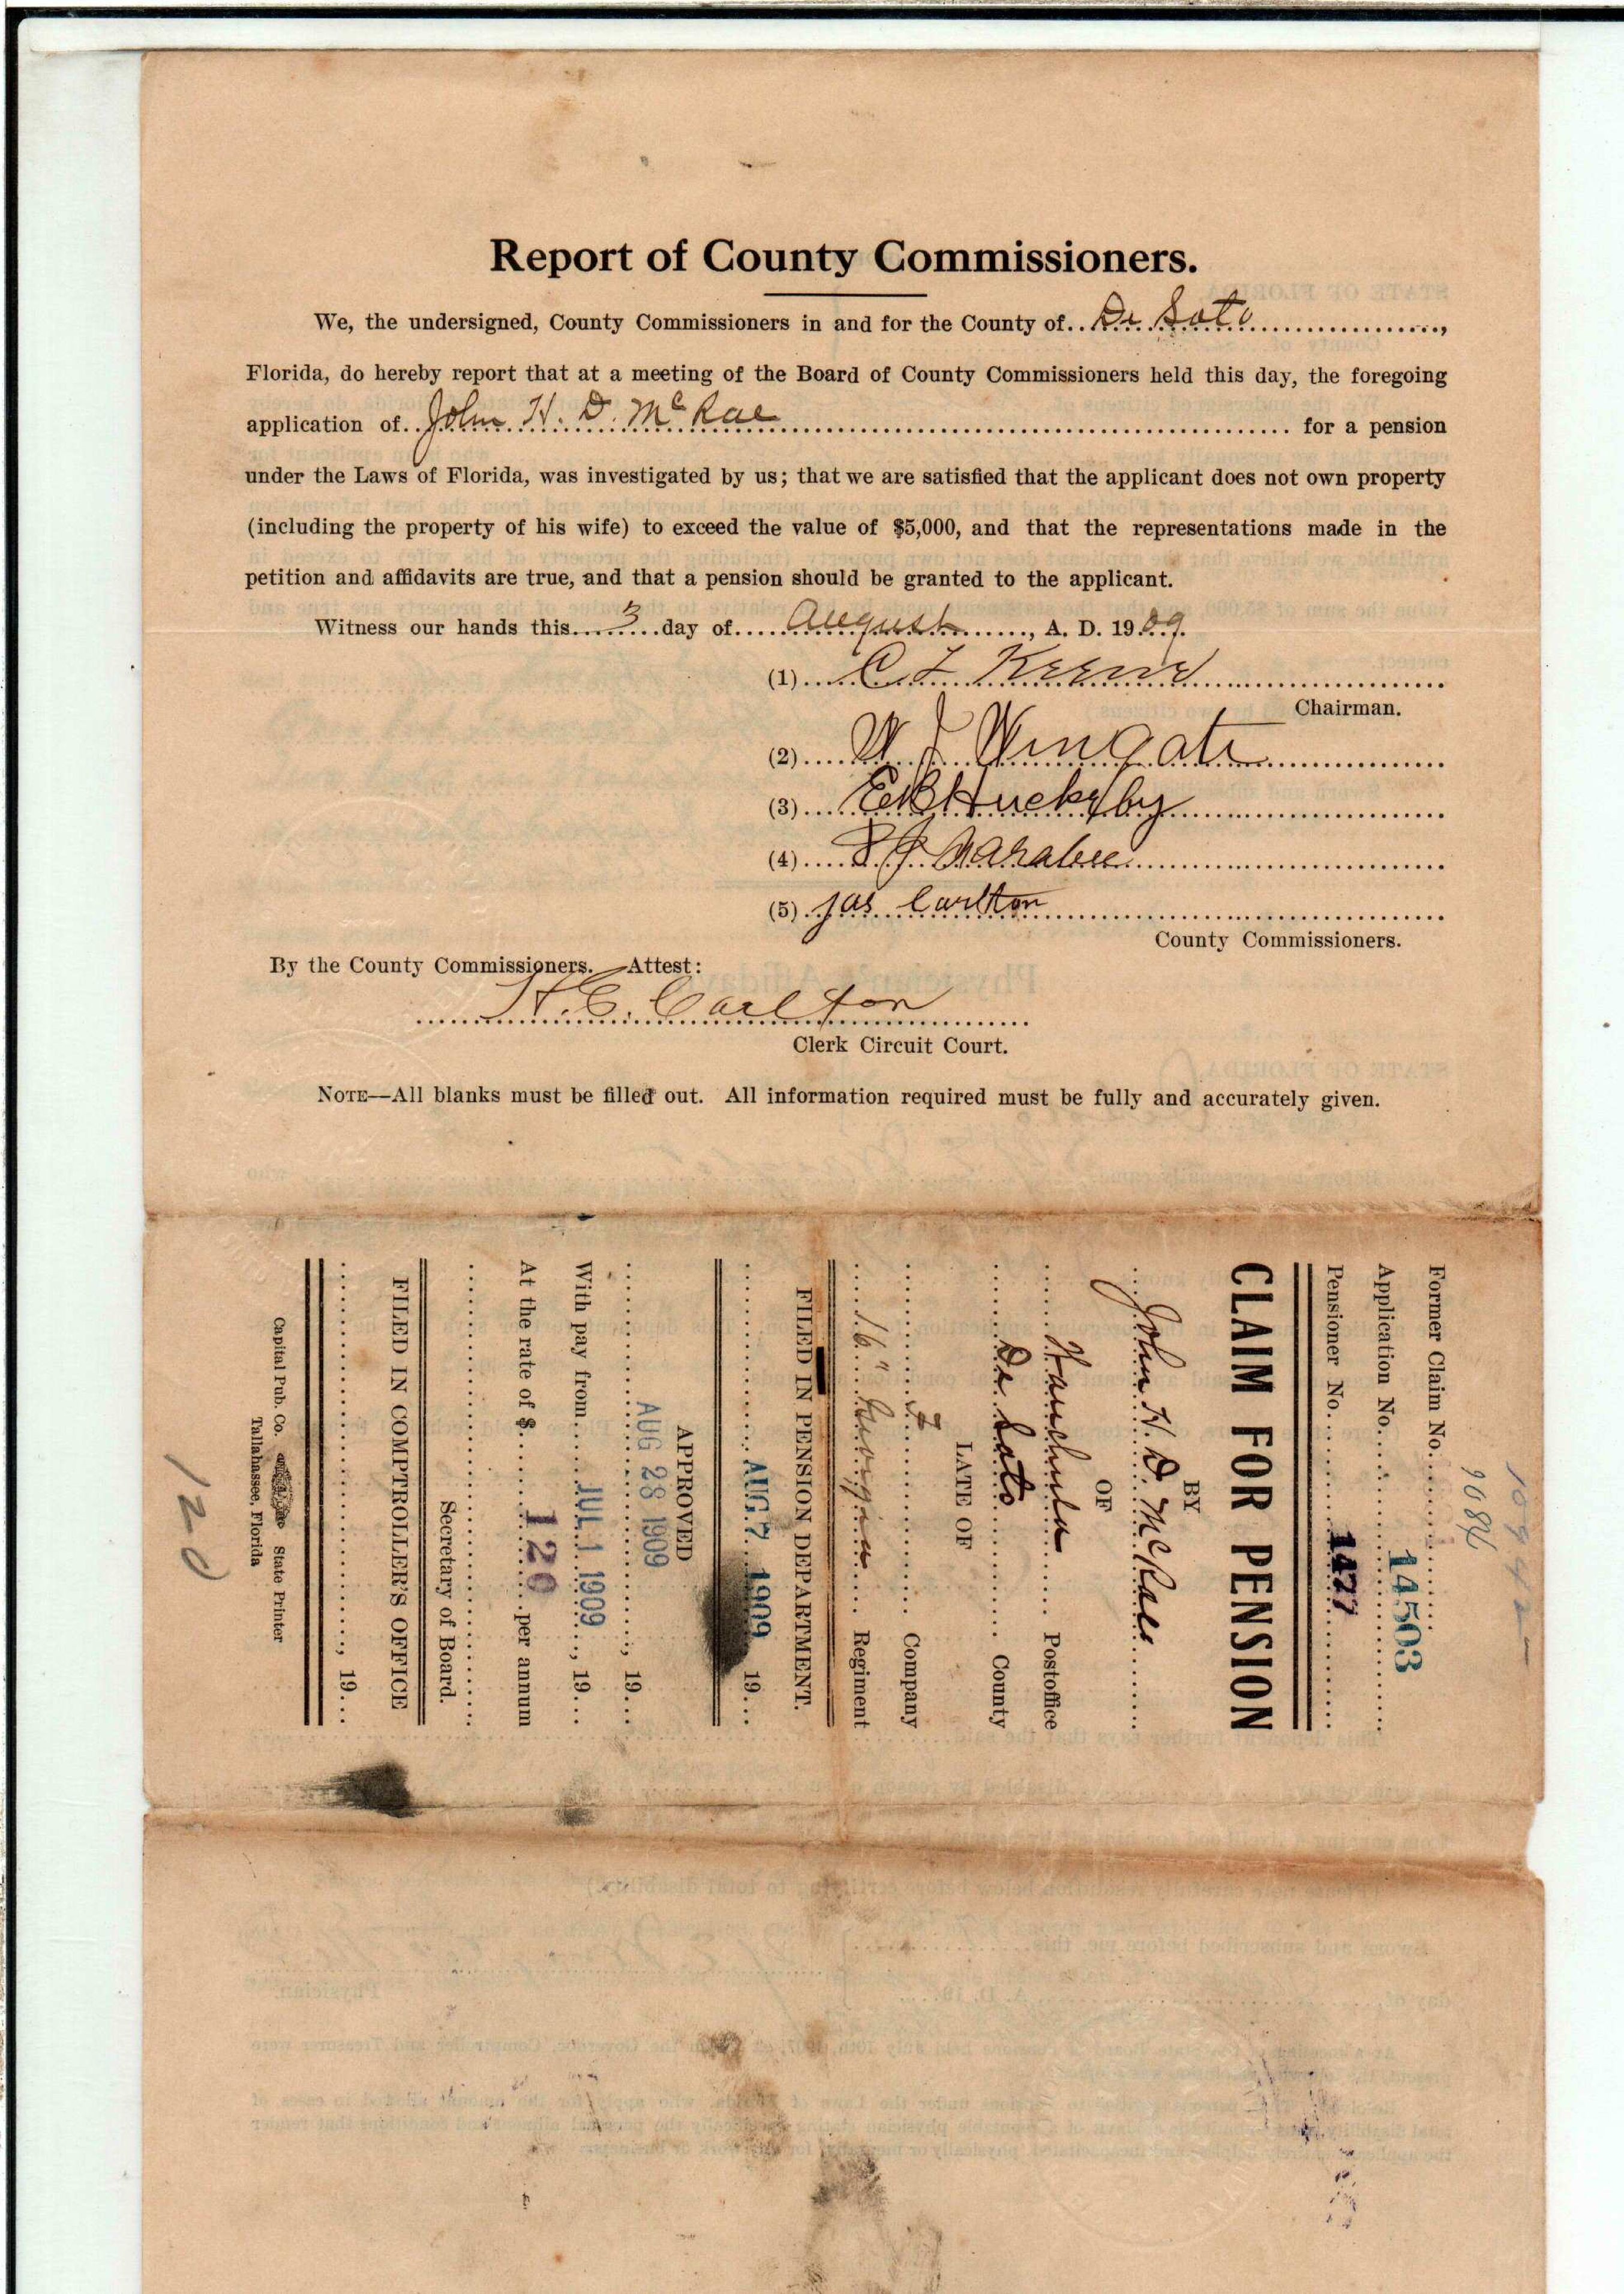 Report of County Commissioners.
We, the undersigned, County Commissioners in and for the County of.. De Soto ..................,
Florida, do hereby report that at a meeting of the Board of County Commissioners held this day, the foregoing
application of.. John H. D. McRae .................. for a pension
under the Laws of Florida, was investigated by us; that we are satisfied that the applicant does not own property
(including the property of his wife) to exceed the value of $5,000, and that the representations made in the
petition and affidavits are true, and that a pension should be granted to the applicant.
Witness our hands this.... 3 ....day of.... August ...., A. D. 1909.
(1).... C L Keene ....
Chairman.
(2).... W J Wingate ....
(3).... E B Huckeby ....
(4)....
(5).. Jas Carlton ....
County Commissioners.
By the County Commissioners. Attest:
H. E. Carlton
Clerk Circuit Court.
NOTE—All blanks must be filled out. All information required must be fully and accurately given.
9086
Former Claim No.....
Application No.... 14503
Pensioner No.... 1477
CLAIM FOR PENSION
BY
John H. D. McRae
OF
Wauchula .... Postoffice
De Soto .... County
LATE OF
.... Company
16" Georgia .... Regiment
FILED IN PENSION DEPARTMENT.
AUG 7 1909 19...
APPROVED
AUG 28 1909 ...., 19...
With pay from.... JUL 1 1909 ...., 19...
At the rate of $.... 120 ....per annum
Secretary of Board.
FILED IN COMPTROLLER'S OFFICE
...., 19...
Capital Pub. Co. State Printer
Tallahassee, Florida
120